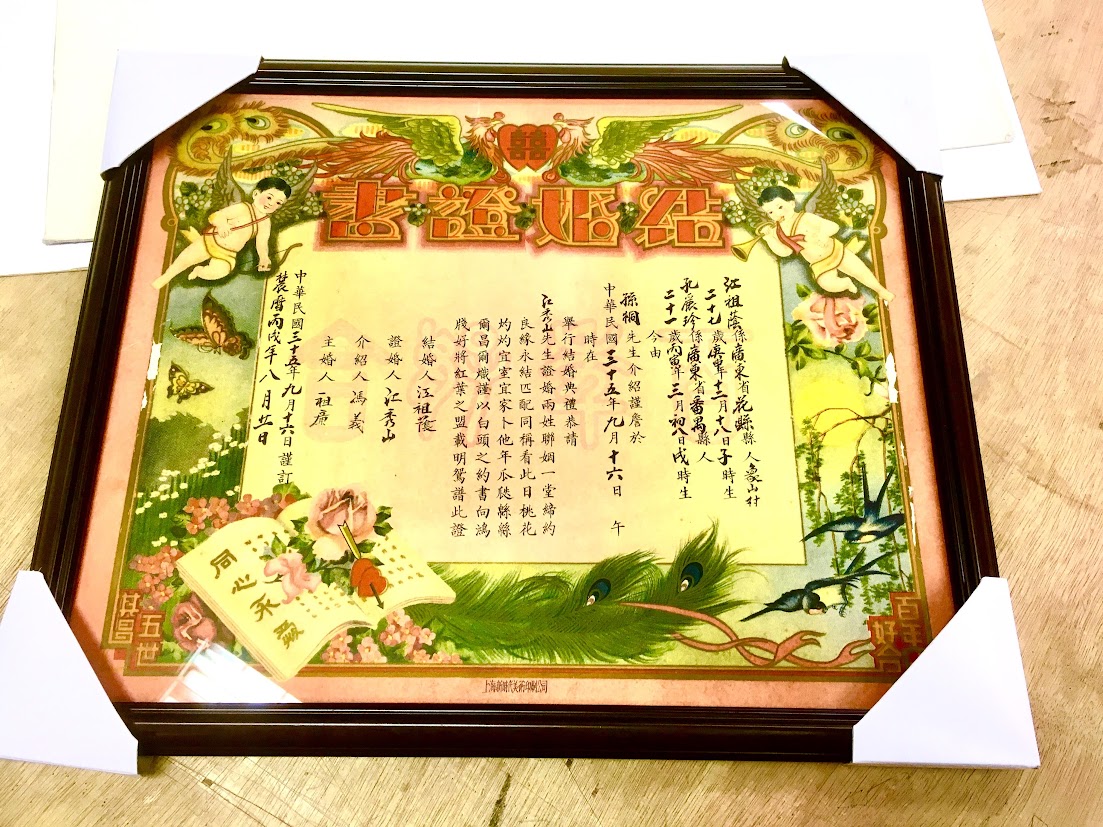 囍
結婚證書
江祖蔭係廣東省花縣縣人象山村
二十七歲庚申年十二月十八日子時生
孔展珍係廣東省番禺縣人
二十一歲丙寅年三月初八日戌時生
今由
孫桐先生介紹謹詹於
中華民國三十五年九月十六日 午
時在
舉行結婚典禮恭請
江秀山先生證婚兩姓聯姻一堂締約
良緣永結匹配同稱看此日桃花
灼灼宜室宜家卜他年瓜瓞緜緜
爾昌爾熾謹以白頭之約書向鴻
牋好將紅葉之盟載明鴛譜此證
結婚人 江祖蔭
證婚人 江秀山
介紹人 馮義
主婚人 祖廉
中華民國三十五年九月十六日謹訂
農曆丙戌年八月廿一日
同心
百年好合
五世其昌
上海新時代美術印刷公司